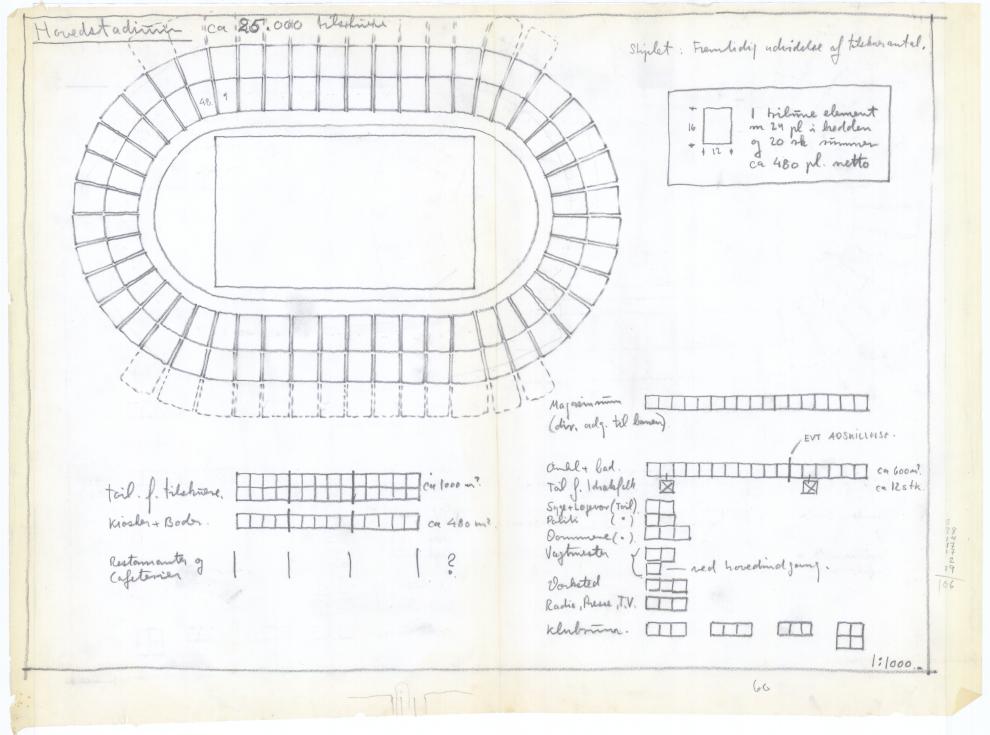 Hovedstadium ca 25.000 tilskuere
Stiplet : Fremtidig udvidelse af tilskuerantal.
48. 9
16
12
1 tribune element
m 24 pl i bredden
og 20 stk
ca 480 pl. netto
Magasinrum
(dir. adg. til banen)
EVT ADSKILLELSE.
Omkl + bad.
ca 600 m².
Toil f. Idrætsfolk
ca 12 stk.
Toil. f. tilskuere.
ca 1000 m².
Kiosker + Boder.
ca 480 m².
Restauranter og
Cafeterier
?
(Toil)
Politi (")
Dommere (").
Vagtmester
ved hovedindgang.
Værksted
Radio, Presse, T.V.
Klubrum.
1:1000.
60
106